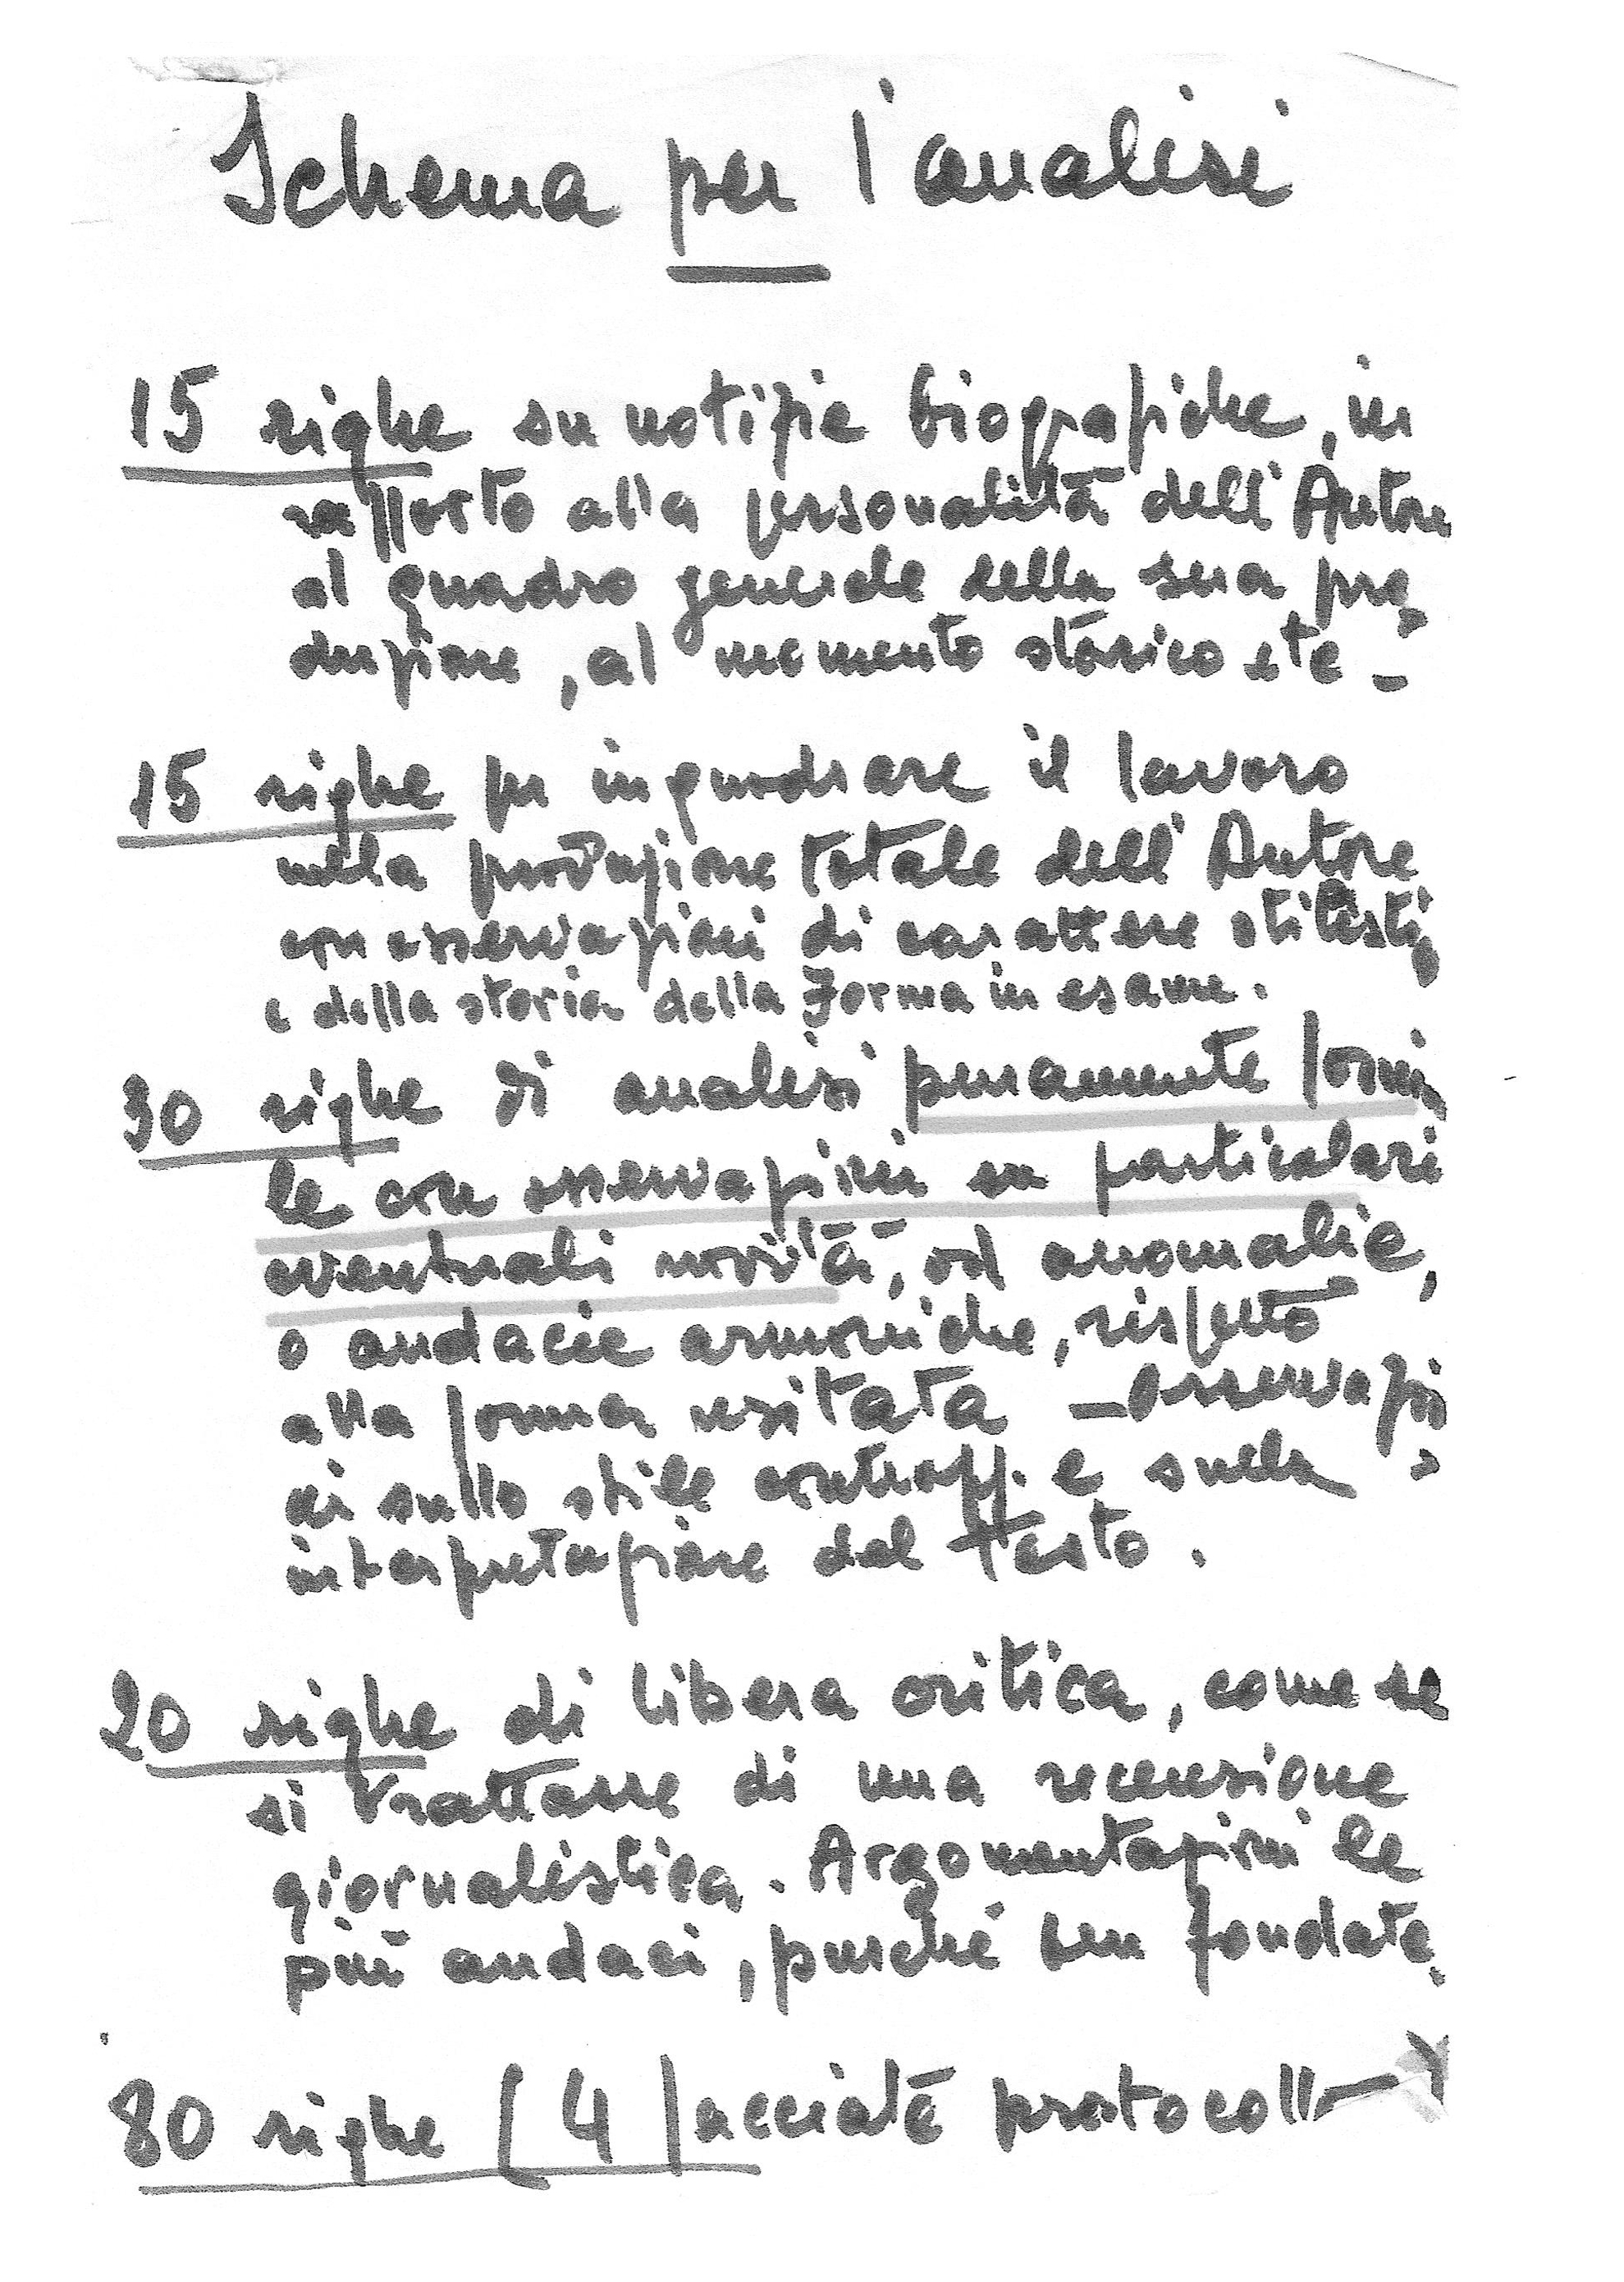 Schema per l'analisi
15 righe su notizie biografiche, in
rapporto alla personalità dell'Autore
al quadro generale della sua pro
duzione, al momento storico etc -
15 righe per inquadrare il lavoro
nella produzione totale dell'Autore
con osservazioni di carattere stilistico
e della storia della forma in esame.
30 righe di analisi puramente forma
le con osservazioni su particolari
eventuali novità, od anomalie,
o audacie armoniche, rispetto
alla forma usitata - Osservazio
ni sullo stile contrapp. e sulla
interpretazione del testo.
20 righe di libera critica, come se
si trattasse di una recensione
giornalistica. Argomentazioni le
più audaci, purché ben fondate.
80 righe ( 4 facciate protocollo